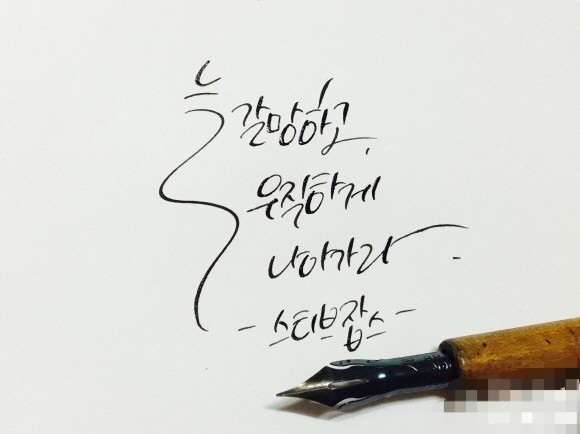 늘 갈망하고,
우직하게
나아가라.
- 스티브잡스 -